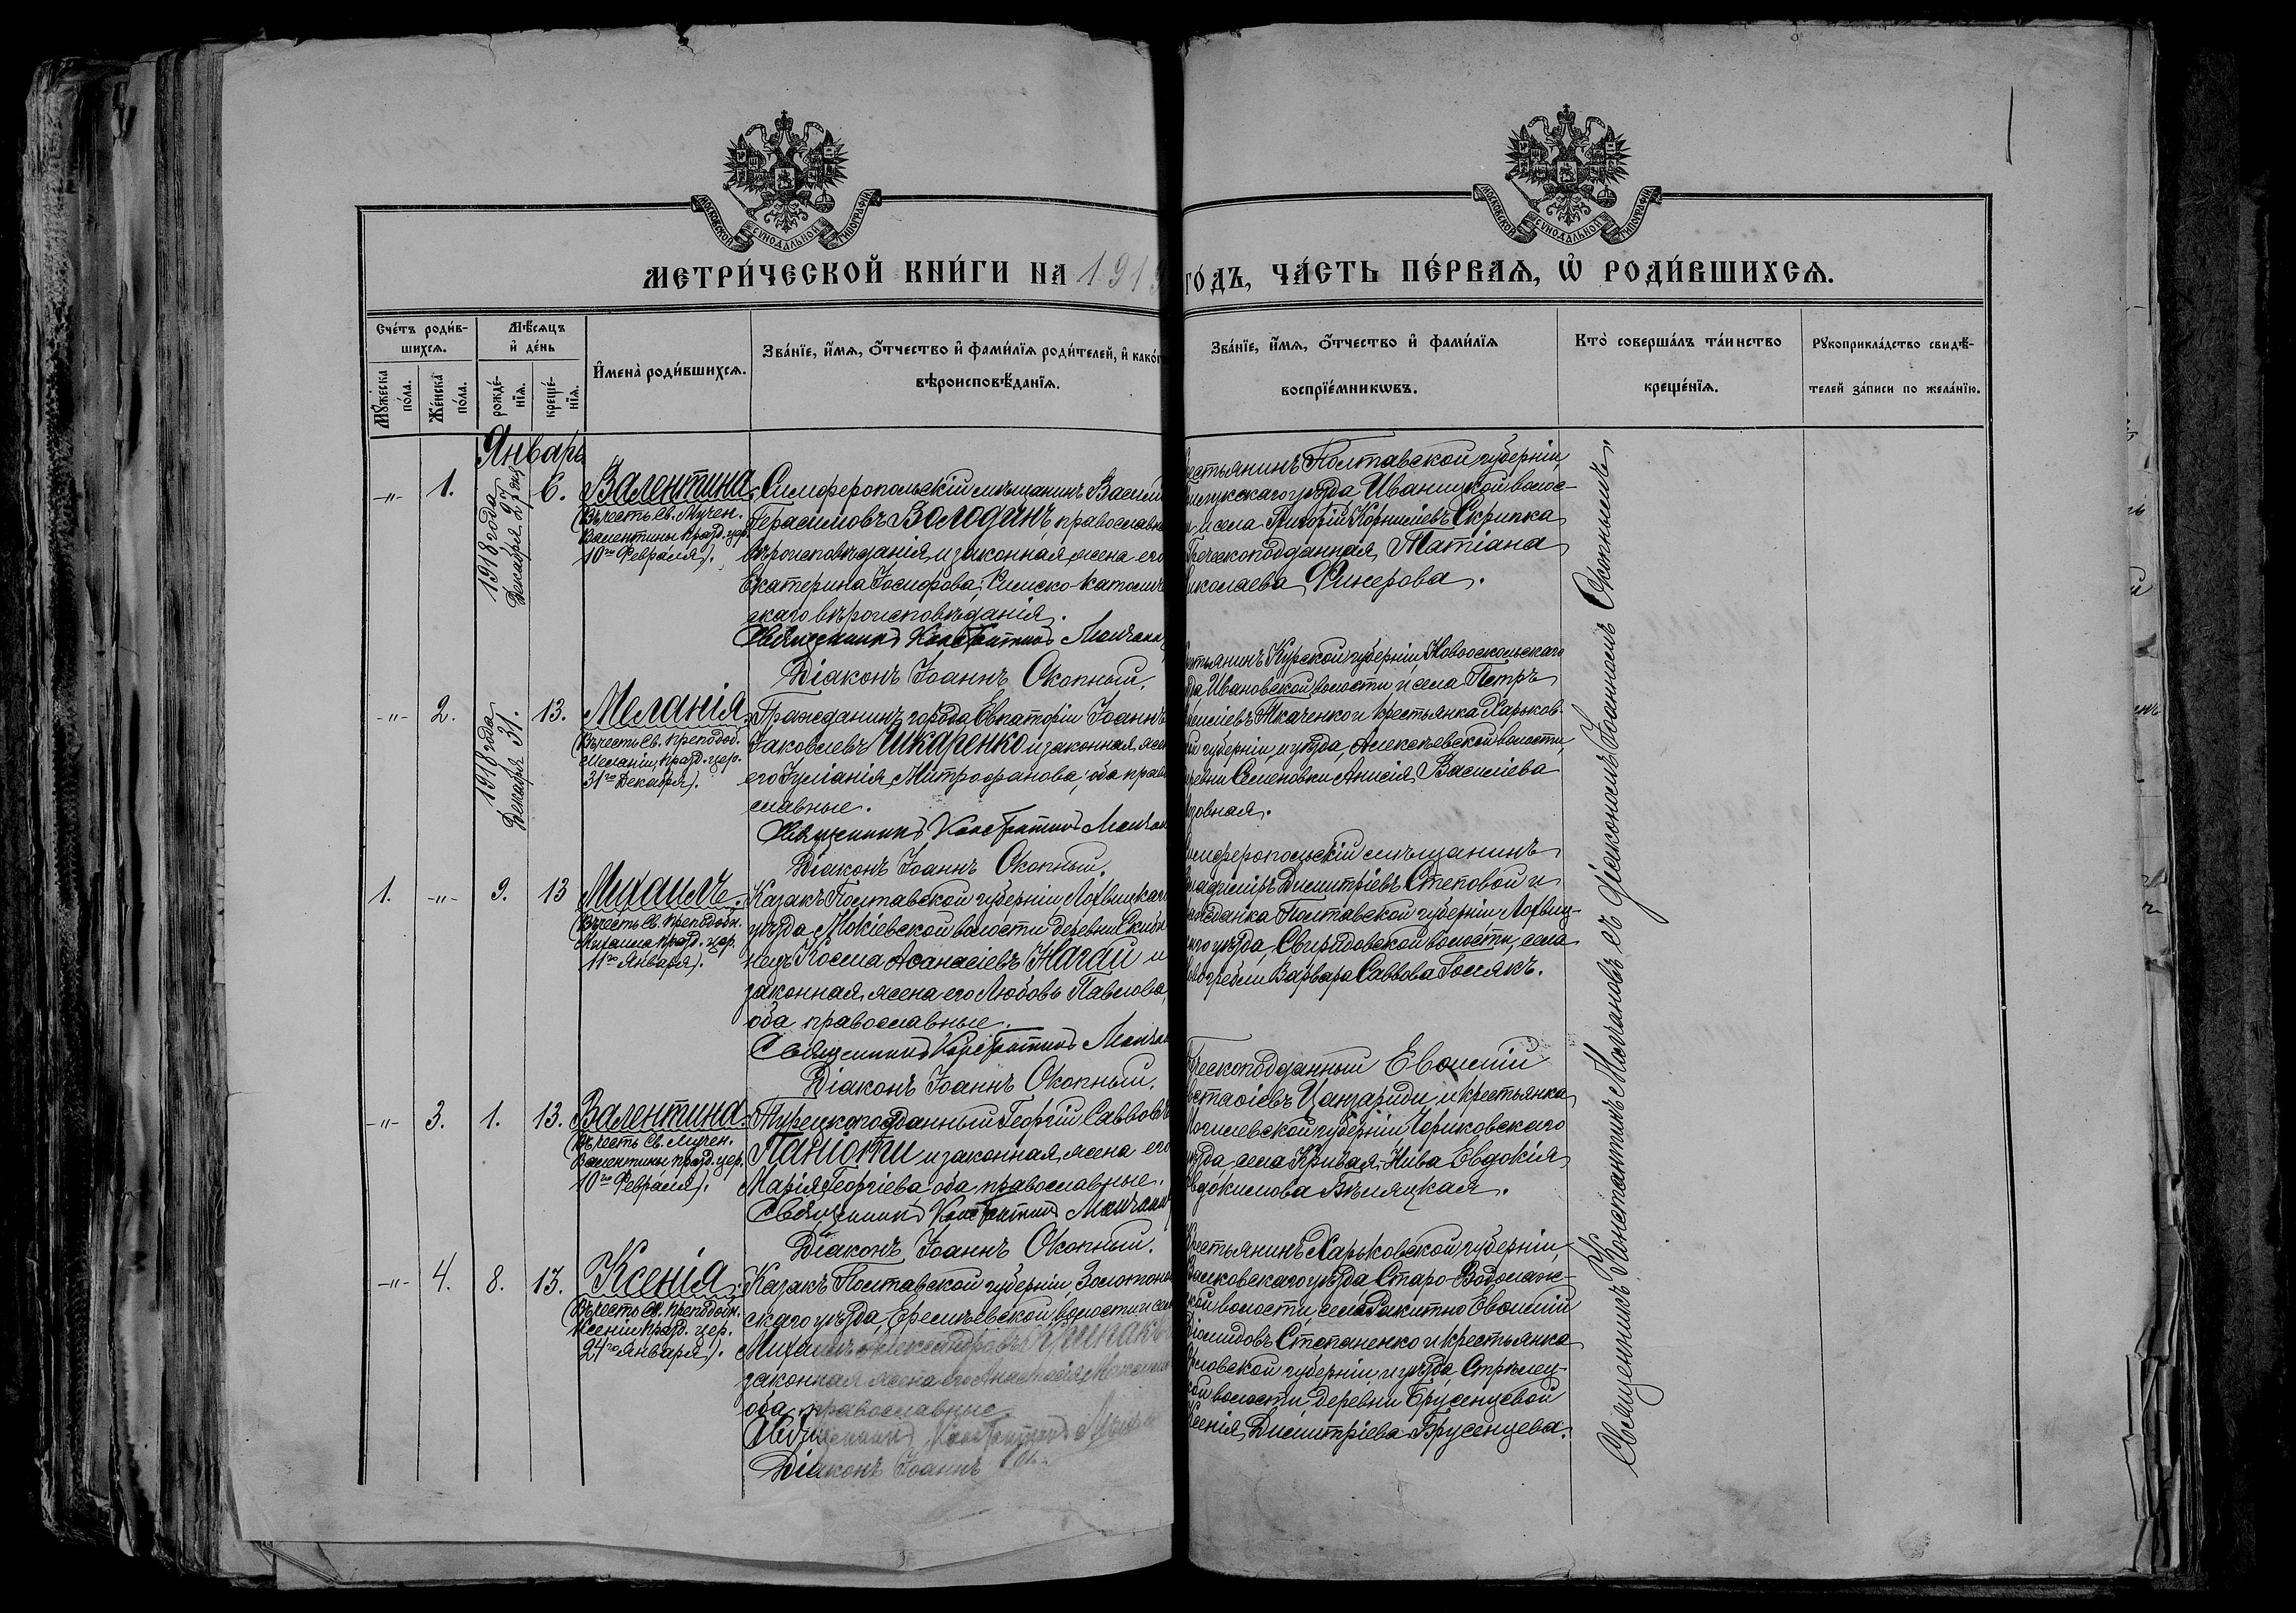 МОСКОВСКОЙ СѴНОДАЛЬНОЙ ТИПОГРАФІИ
МОСКОВСКОЙ СѴНОДАЛЬНОЙ ТИПОГРАФІИ
МЕТРИ́ЧЕСКОЙ КНИ́ГИ НА 1919
ГО́ДЪ, ЧА́СТЬ ПЕ́РВАѦ, Ѽ РОДИ́ВШИХСѦ.
Сче́тъ роди́в-
шихсѧ.
Мꙋ́жеска по́ла.
Же́нска по́ла.
Мѣ́сѧцъ
и҆ де́нь
рожде́-
нїѧ.
креще́-
нїѧ.
И҆мена̀ роди́вшихсѧ.
Зва́нїе, и҆́мѧ, ѻ҆́тчество и҆ фами́лїѧ роди́телей, и҆ како́г
вѣроисповѣ́данїѧ.
Зва́нїе, и҆́мѧ, ѻ҆́тчество и҆ фами́лїѧ
воспрїе́мникѡвъ.
Кто̀ соверша́лъ та́инство
креще́нїѧ.
Рꙋкоприкла́дство свидѣ́-
телей за́писи по жела́нїю.
Январь
-"- 1.
1918 года
Декабря 27 дня
6.
Валентина
(Въ честь Св. Мучен.
Валентины празд. цер.
10го Февраля).
Симферопольскій мѣщанинъ Васил
Герасимовъ Володинъ, православн
вѣроисповѣданія, и законная жена его
Екатерина Іосифова, Римско-католич
скаго вѣроисповѣданія.
Священникъ Константинъ Молчано
Діаконъ Іоаннъ Окопный.
естьянинъ Полтавской губерніи,
уѣзда, Иваницкой волос-
и села Григорій Корнилiевъ Скрипка
Греческоподданная Татіана
иколаева Финерова.
-"- 2.
1918 года
Декабря 31.
13.
Меланія.
(Въ честь Св. Преподоб.
Меланіи, празд. цер.
31го Декабря).
Гражданинъ города Евпаторіи Іоаннъ
Іаковлевъ Шкаренко и законная жен
его Іуліанія Митрофанова, оба право
славные.
Священникъ Константинъ Молчан
Діаконъ Іоаннъ Окопный.
стьянинъ Курской губерніи, Новооскольскаго
да Ивановской волости, и села Петръ
Ткаченко и крестьянка Харьков-
й губерніи, и уѣзда, Алексѣевской волости,
ревни Семеновки Анисія Василіева
1. -"- 9. 13
Михаилъ.
(Въ честь Св. Преподобн.
Михаила празд. цер.
11го Января).
Казакъ Полтавской губерніи Лохвицкаго
уѣзда, Мокіевской волости деревни Скиб
нецъ Косма Аѳанасіевъ Нагай и
законная жена его Любовь Павлова,
оба православные.
Священникъ Константинъ Молчан
Діаконъ Іоаннъ Окопный.
имферопольскій мѣщанинъ
ладиміръ Димитріевъ Степовой и
ажданка Полтавской губерніи Лохвиц-
аго уѣзда, Свиридовской волости, села
Варвара Саввова Гомякъ.
-"- 3. 1. 13.
Валентина.
(Въ честь Св. Мучен.
Валентины празд. цер.
10го Февраля).
Турецкоподданный Георгій Саввовъ
Паніоти и законная жена его
Марія Георгіева, оба православные.
Священникъ Константинъ Молчано
Діаконъ Іоаннъ Окопный.
Греческоподданный Евѳимій
встаѳіевъ Цангариди и крестьянка
Могилевской губерніи, Чериковскаго
уѣзда, села Кривая-Нива Евдокія
вдокимова Бѣляцкая.
-"- 4. 8. 13.
Ксенія.
(Въ честь Св. Преподобн.
Ксеніи празд. цер.
24го Января).
Казакъ Полтавской губерніи, Золотоно
скаго уѣзда, Еремѣевской волости и села
Михаилъ Александровъ
законная жена его Анастасія Максимо
оба православные
Священникъ Константинъ
Діаконъ Іоаннъ
Крестьянинъ Харьковской губерніи,
Валковскаго уѣзда, Старо-Водолаж-
кой волости, села Ракитно Евѳимій
Діомидовъ Степаненко и крестьянка
Орловской губерніи, и уѣзда, Стрѣлец-
кой волости, деревни Брусенцевой
Ксенія Димитріева Брусенцева.
Священникъ Константинъ Молчановъ съ діакономъ Іоанномъ Окопнымъ.